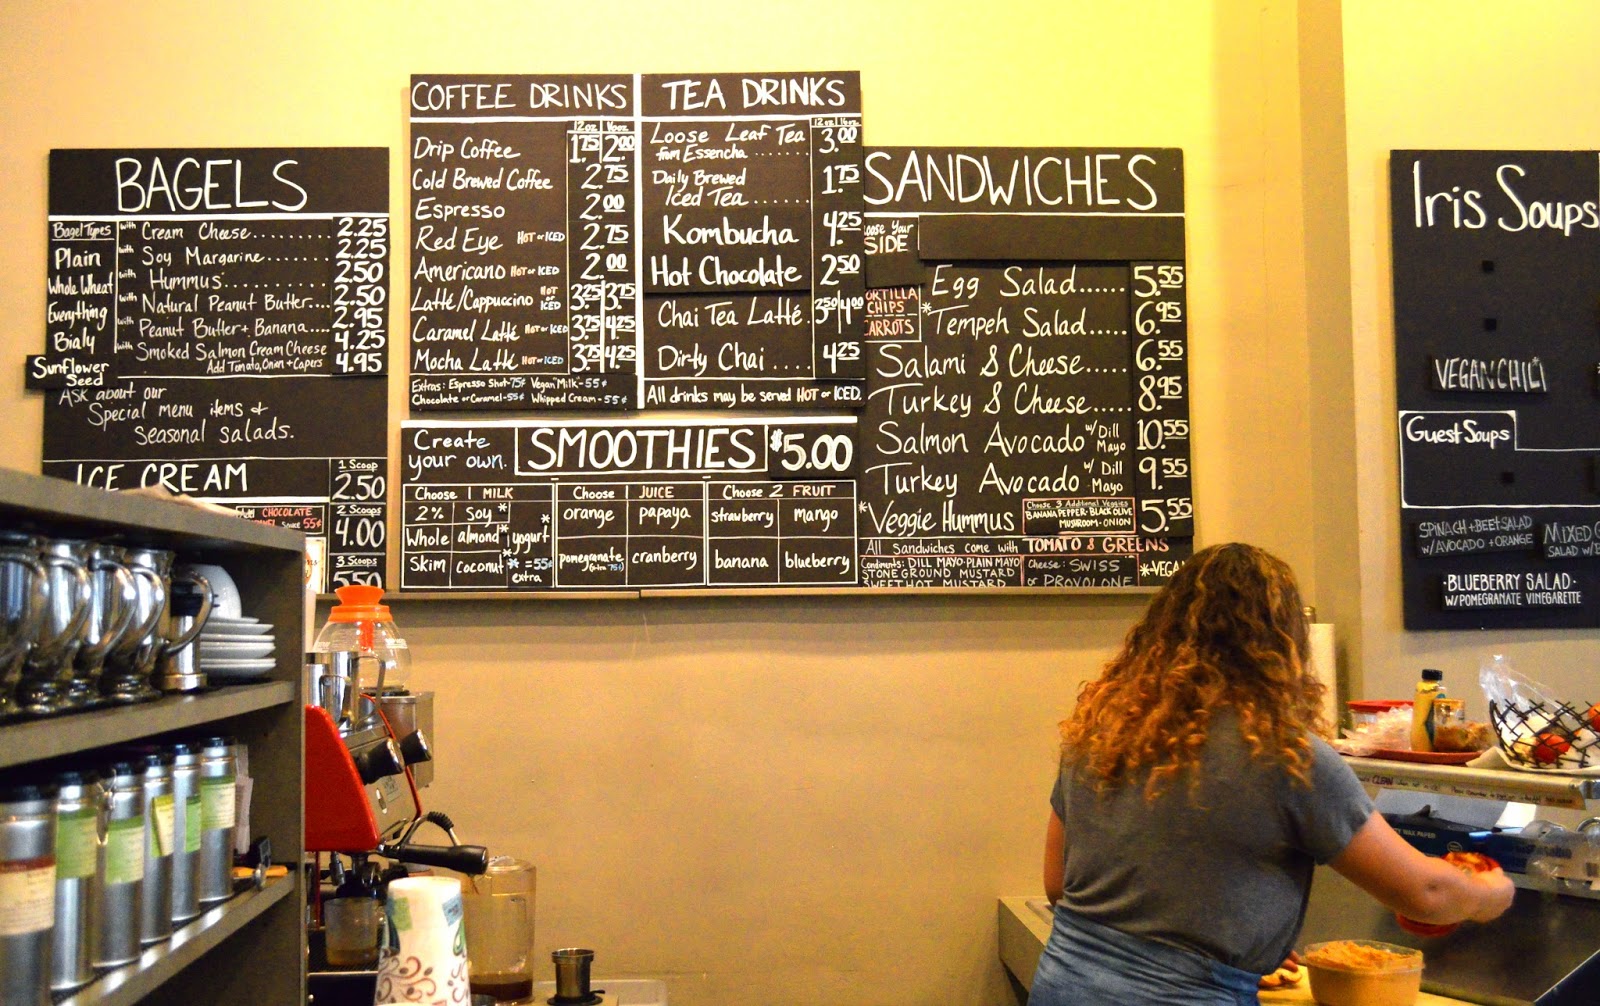 BAGELS
Bagel Types
Plain
Whole Wheat
Everything
Bialy
Sunflower Seed
with Cream Cheese......... 2.25
with Soy Margarine....... 2.25
with Hummus.......... 2.50
with Natural Peanut Butter... 2.50
with Peanut Butter + Banana.... 2.95
with Smoked Salmon Cream Cheese 4.25
Add Tomato, Onion + Capers 4.95
Ask about our
Special menu items &
Seasonal salads.
ICE CREAM
1 Scoop
2.50
2 Scoops
4.00
3 Scoops
5.50
CHOCOLATE
Sauce 55¢
COFFEE DRINKS
12oz 16oz
Drip Coffee 1.75 2.00
Cold Brewed Coffee 2.75
Espresso 2.00
Red Eye HOT or ICED 2.75
Americano HOT or ICED 2.00
Latté/Cappuccino HOT or ICED 3.25 3.75
Caramel Latté HOT or ICED 3.75 4.25
Mocha Latté HOT or ICED 3.75 4.25
Extras: Espresso Shot-75¢ Vegan "Milk"-55¢
Chocolate or Caramel-55¢ Whipped Cream-55¢
TEA DRINKS
12oz 16oz
Loose Leaf Tea
from Essencha ....... 3.00
Daily Brewed
Iced Tea...... 1.75
Kombucha 4.25
Hot Chocolate 2.50
Chai Tea Latté. 3.50 4.00
Dirty Chai .... 4.25
All drinks may be served HOT or ICED.
Create your own.
SMOOTHIES $5.00
Choose 1 MILK
2% Soy*
Whole almond* yogurt*
Skim coconut* *=55¢ extra
Choose 1 JUICE
orange papaya
pomegranate (Extra 75¢) cranberry
Choose 2 FRUIT
strawberry mango
banana blueberry
SANDWICHES
Your
SIDE
CHIPS
Egg Salad...... 5.55
*Tempeh Salad..... 6.95
Salami & Cheese..... 6.55
Turkey & Cheese..... 8.95
Salmon Avocado w/ Dill Mayo 10.55
Turkey Avocado w/ Dill Mayo 9.55
*Veggie Hummus 5.55
Choose 3 Additional Veggies
BANANA PEPPER·BLACK OLIVE
MUSHROOM·ONION
All Sandwiches come with TOMATO & GREENS
Condiments: DILL MAYO·PLAIN MAYO
STONE GROUND MUSTARD
SWEET HOT MUSTARD
Cheese: SWISS
or PROVOLONE
Iris Soups
VEGAN CHILI*
Guest Soups
SPINACH + BEET SALAD
W/ AVOCADO + ORANGE
MIXED
SALAD
·BLUEBERRY SALAD·
W/ POMEGRANATE VINEGARETTE